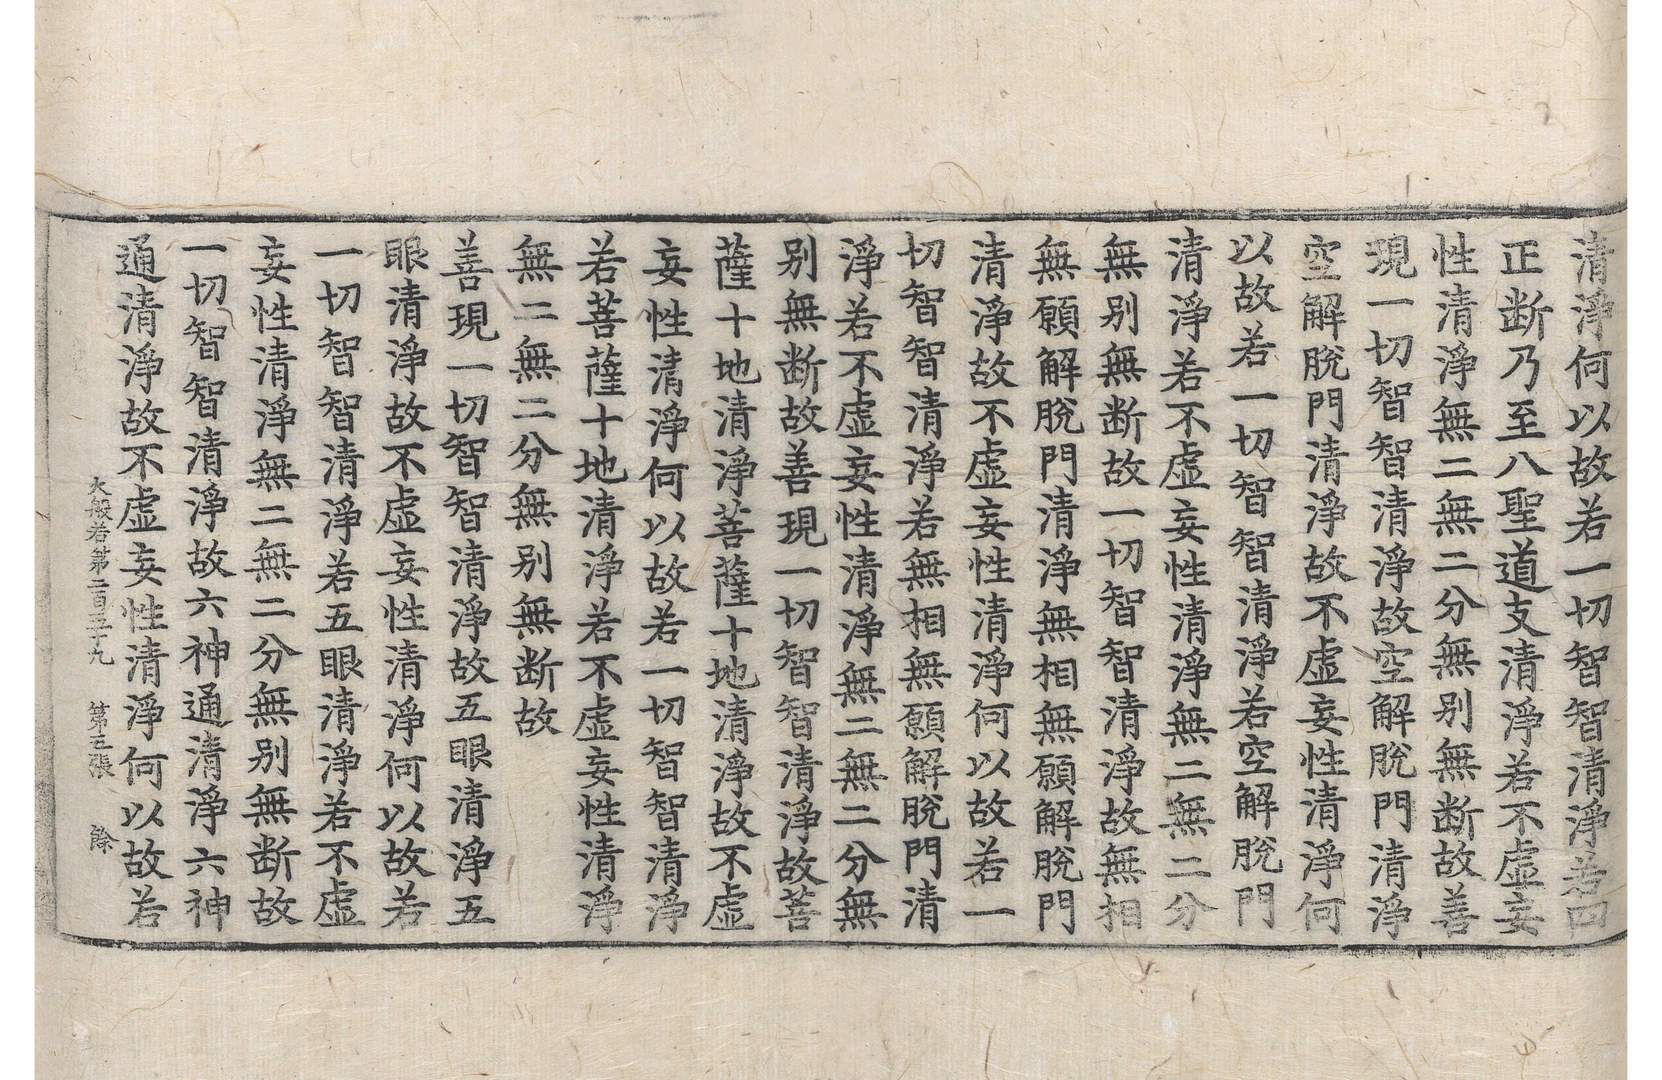 清淨何以故若一切智智清淨若四
正断乃至八聖道支清淨若不虛妄
性清淨無二無二分無别無断故善
現一切智智清淨故空解脫門清淨
空解脫門清淨故不虛妄性清淨何
以故若一切智智清淨若空解脫門
清淨若不虛妄性清淨無二無二分
無别無断故一切智智清淨故無相
無願解脫門清淨無相無願解脫門
清淨故不虛妄性清淨何以故若一
切智智清淨若無相無願解脫門清
淨若不虛妄性清淨無二無二分無
别無断故善現一切智智清淨故菩
薩十地清淨菩薩十地清淨故不虛
妄性清淨何以故若一切智智清淨
若菩薩十地清淨若不虛妄性清淨
無二無二分無别無断故
善現一切智智清淨故五眼清淨五
眼清淨故不虛妄性清淨何以故若
一切智智清淨若五眼清淨若不虛
妄性清淨無二無二分無别無断故
一切智智清淨故六神通清淨六神
通清淨故不虛妄性清淨何以故若
大般若第二百五十九 第五張 餘